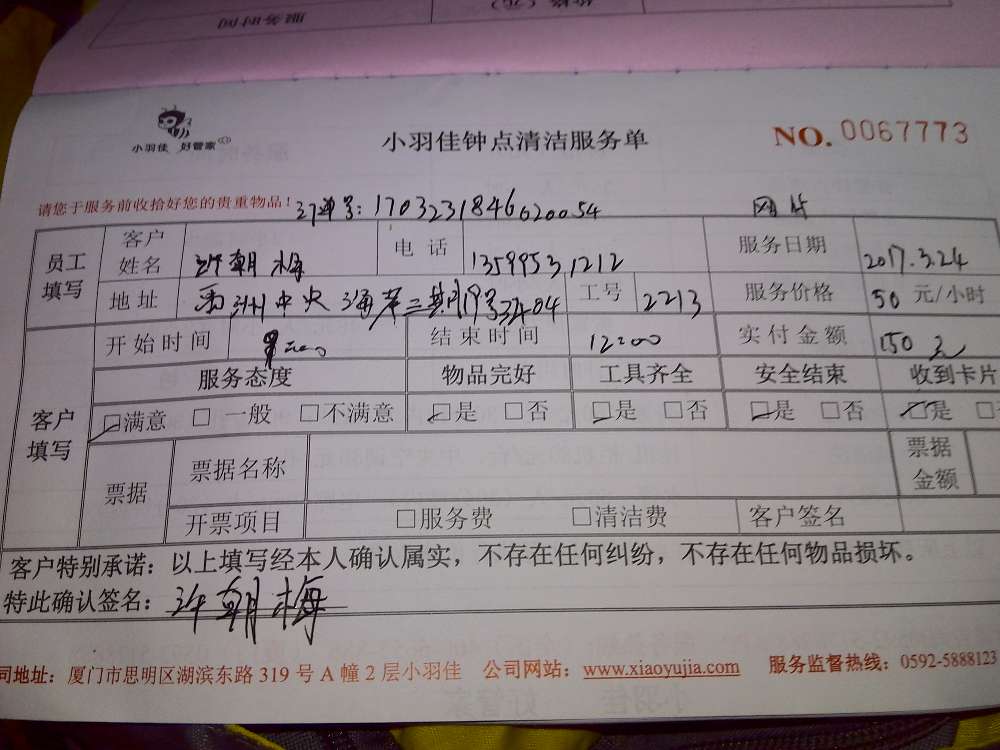 服务时间
小羽佳 好管家
小羽佳钟点清洁服务单
NO. 0067773
请您于服务前收拾好您的贵重物品!
单号: 1703231846620054
员工填写 客户姓名 许朝梅 电话 13599531212 服务日期 2017.3.24
地址 工号 2213 服务价格 50 元/小时
开始时间 结束时间 12:00 实付金额 150元
客户填写 服务态度 物品完好 工具齐全 安全结束 收到卡片
□满意 □一般 □不满意 □是 □否 □是 □否 □是 □否 □是
票据 票据名称 票据金额
开票项目 □服务费 □清洁费 客户签名
客户特别承诺：以上填写经本人确认属实，不存在任何纠纷，不存在任何物品损坏。
特此确认签名：许朝梅
司地址：厦门市思明区湖滨东路 319 号 A 幢 2 层小羽佳 公司网站：www.xiaoyujia.com 服务监督热线：0592-5888123